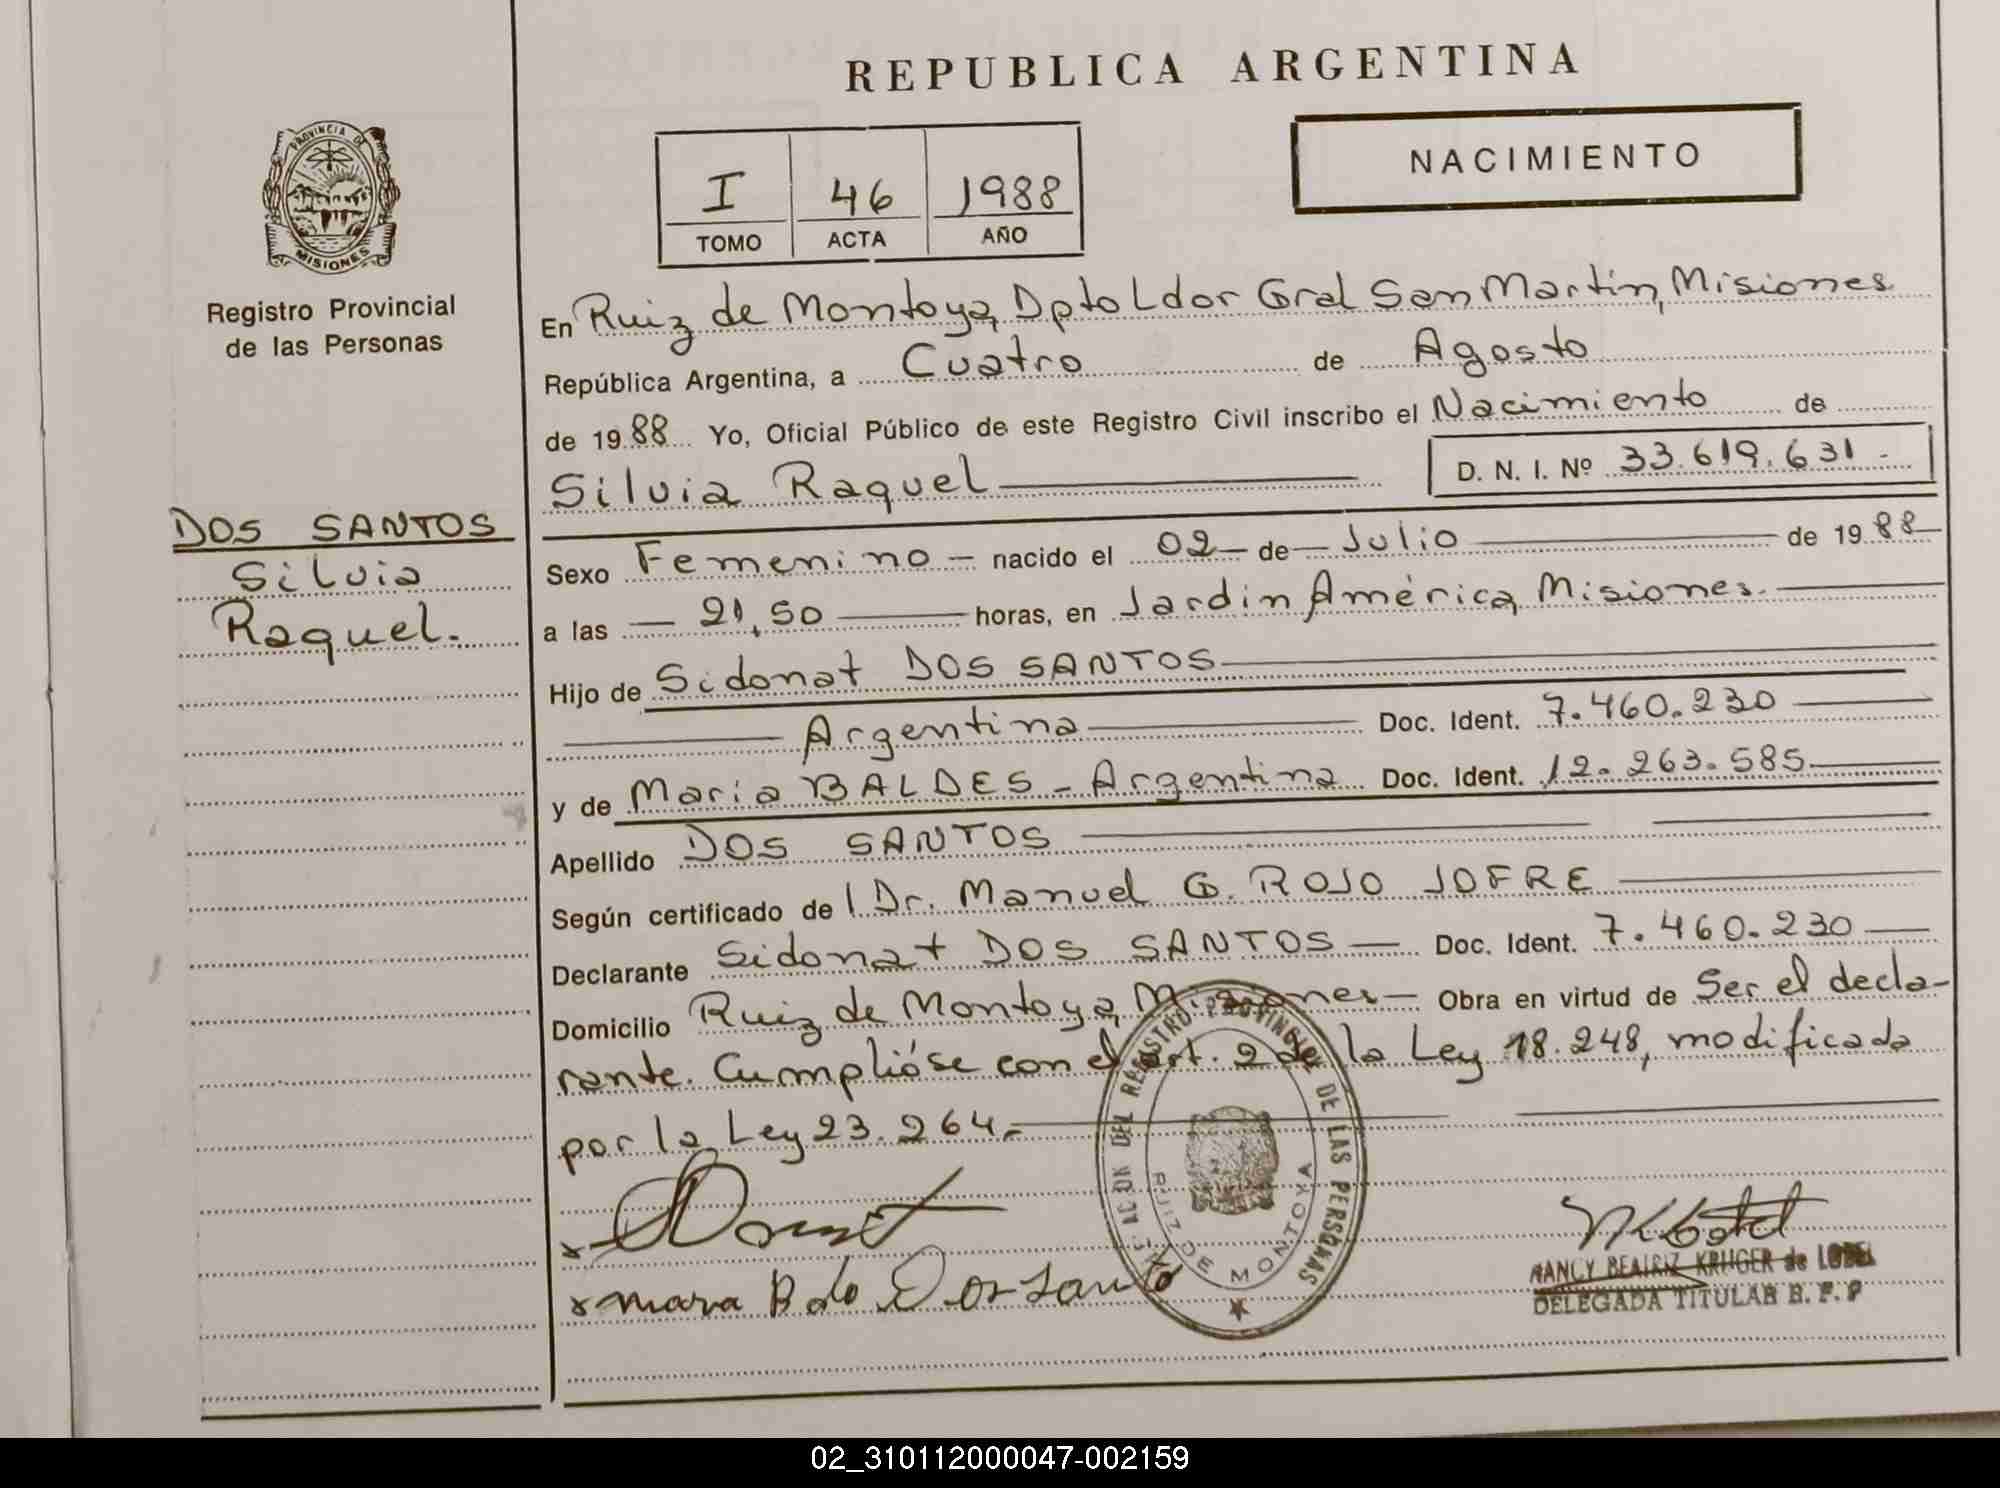 REPUBLICA ARGENTINA
PROVINCIA DE MISIONES
Registro Provincial
de las Personas
I 46 1988
TOMO ACTA AÑO
NACIMIENTO
DOS SANTOS
Silvia
Raquel.
En Ruiz de Montoya, Dpto Ldor Gral San Martín, Misiones
República Argentina, a Cuatro de Agosto
de 1988 Yo, Oficial Público de este Registro Civil inscribo el Nacimiento de
Silvia Raquel D. N. I. Nº 33.619.631.-
Sexo Femenino - nacido el 02 - de - Julio de 1988
a las - 21,50 - horas, en Jardin América, Misiones.
Hijo de Sidonat DOS SANTOS
Argentina Doc. Ident. 7.460.230
y de Maria BALDES - Argentina Doc. Ident. 12.263.585
Apellido DOS SANTOS
Según certificado de l Dr. Manuel G. ROJO JOFRE
Declarante Sidonat DOS SANTOS - Doc. Ident. 7.460.230
Domicilio Ruiz de Montoya, Misiones - Obra en virtud de Ser el decla-
rante. Cumplióse con el art. 2 de la Ley 18.248, modificada
por la Ley 23.264.-
DEL REGISTRO PROVINCIAL DE LAS PERSONAS
RUIZ DE MONTOYA
NANCY BEATRIZ KRUGER de LOBEL
DELEGADA TITULAR R. P. P
02_310112000047-002159